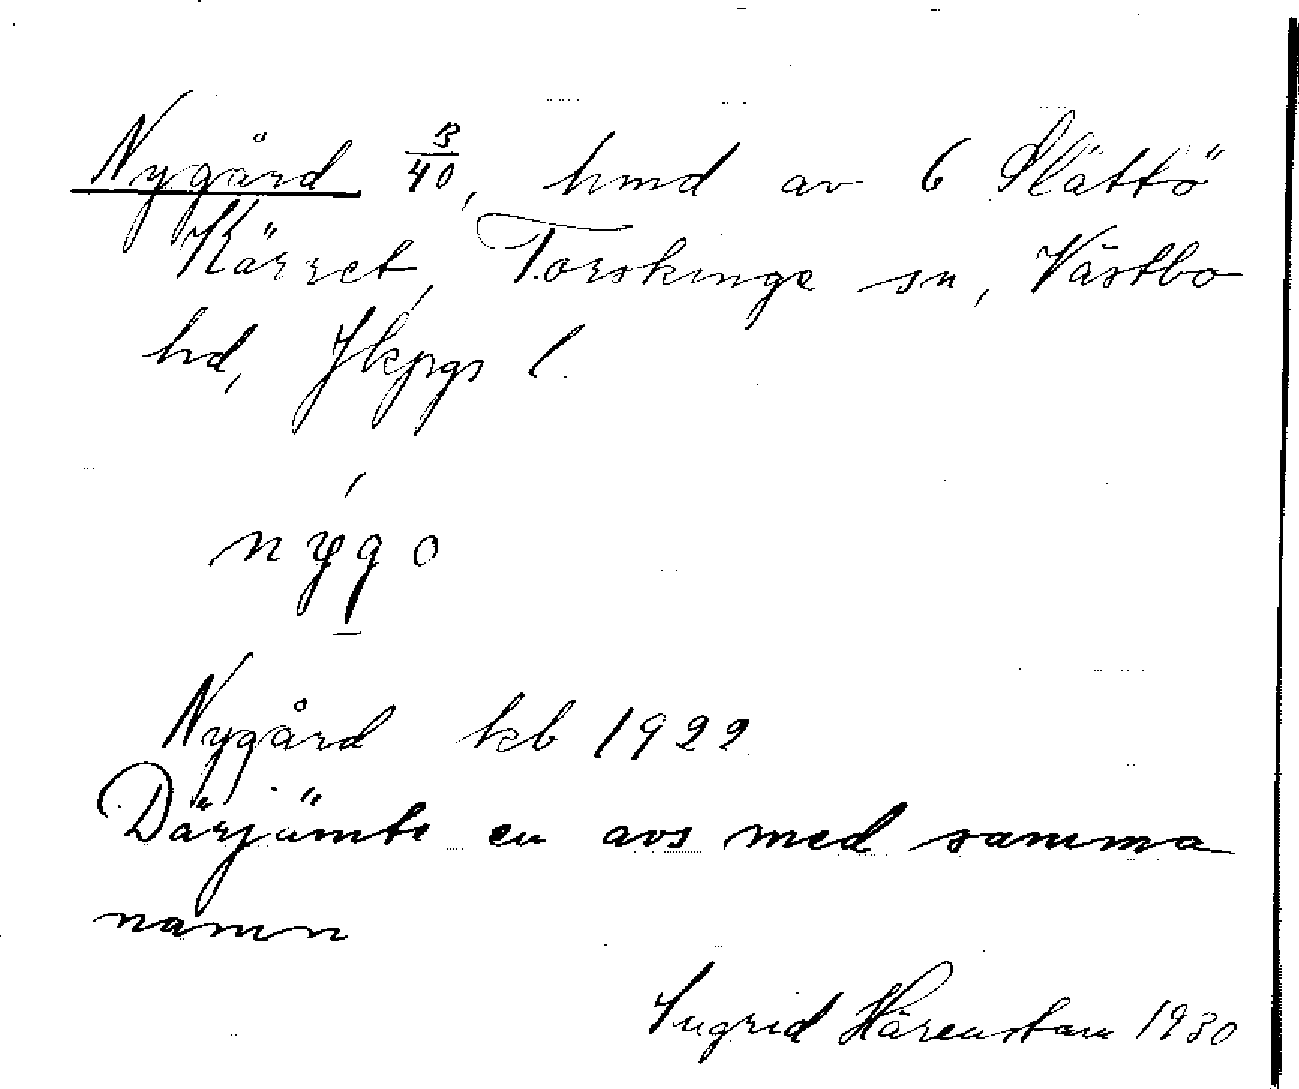 Nygård 3/40, hmd av 6 Slättö
Kärret, Torskinge sn, Västbo
hd, Jkpgs l.
nýgo
Nygård kb 1922
Därjämte en avs med samma
namn
Ingrid Härenstam 1930